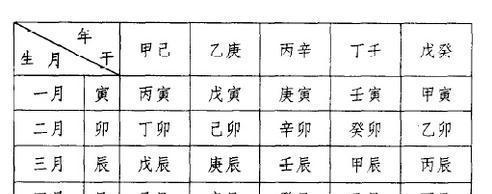 年
生 月 干 甲己 乙庚 丙辛 丁壬 戊癸
一月 寅 丙寅 戊寅 庚寅 壬寅 甲寅
二月 卯 丁卯 己卯 辛卯 癸卯 乙卯
三月 辰 戊辰 庚辰 壬辰 甲辰 丙辰